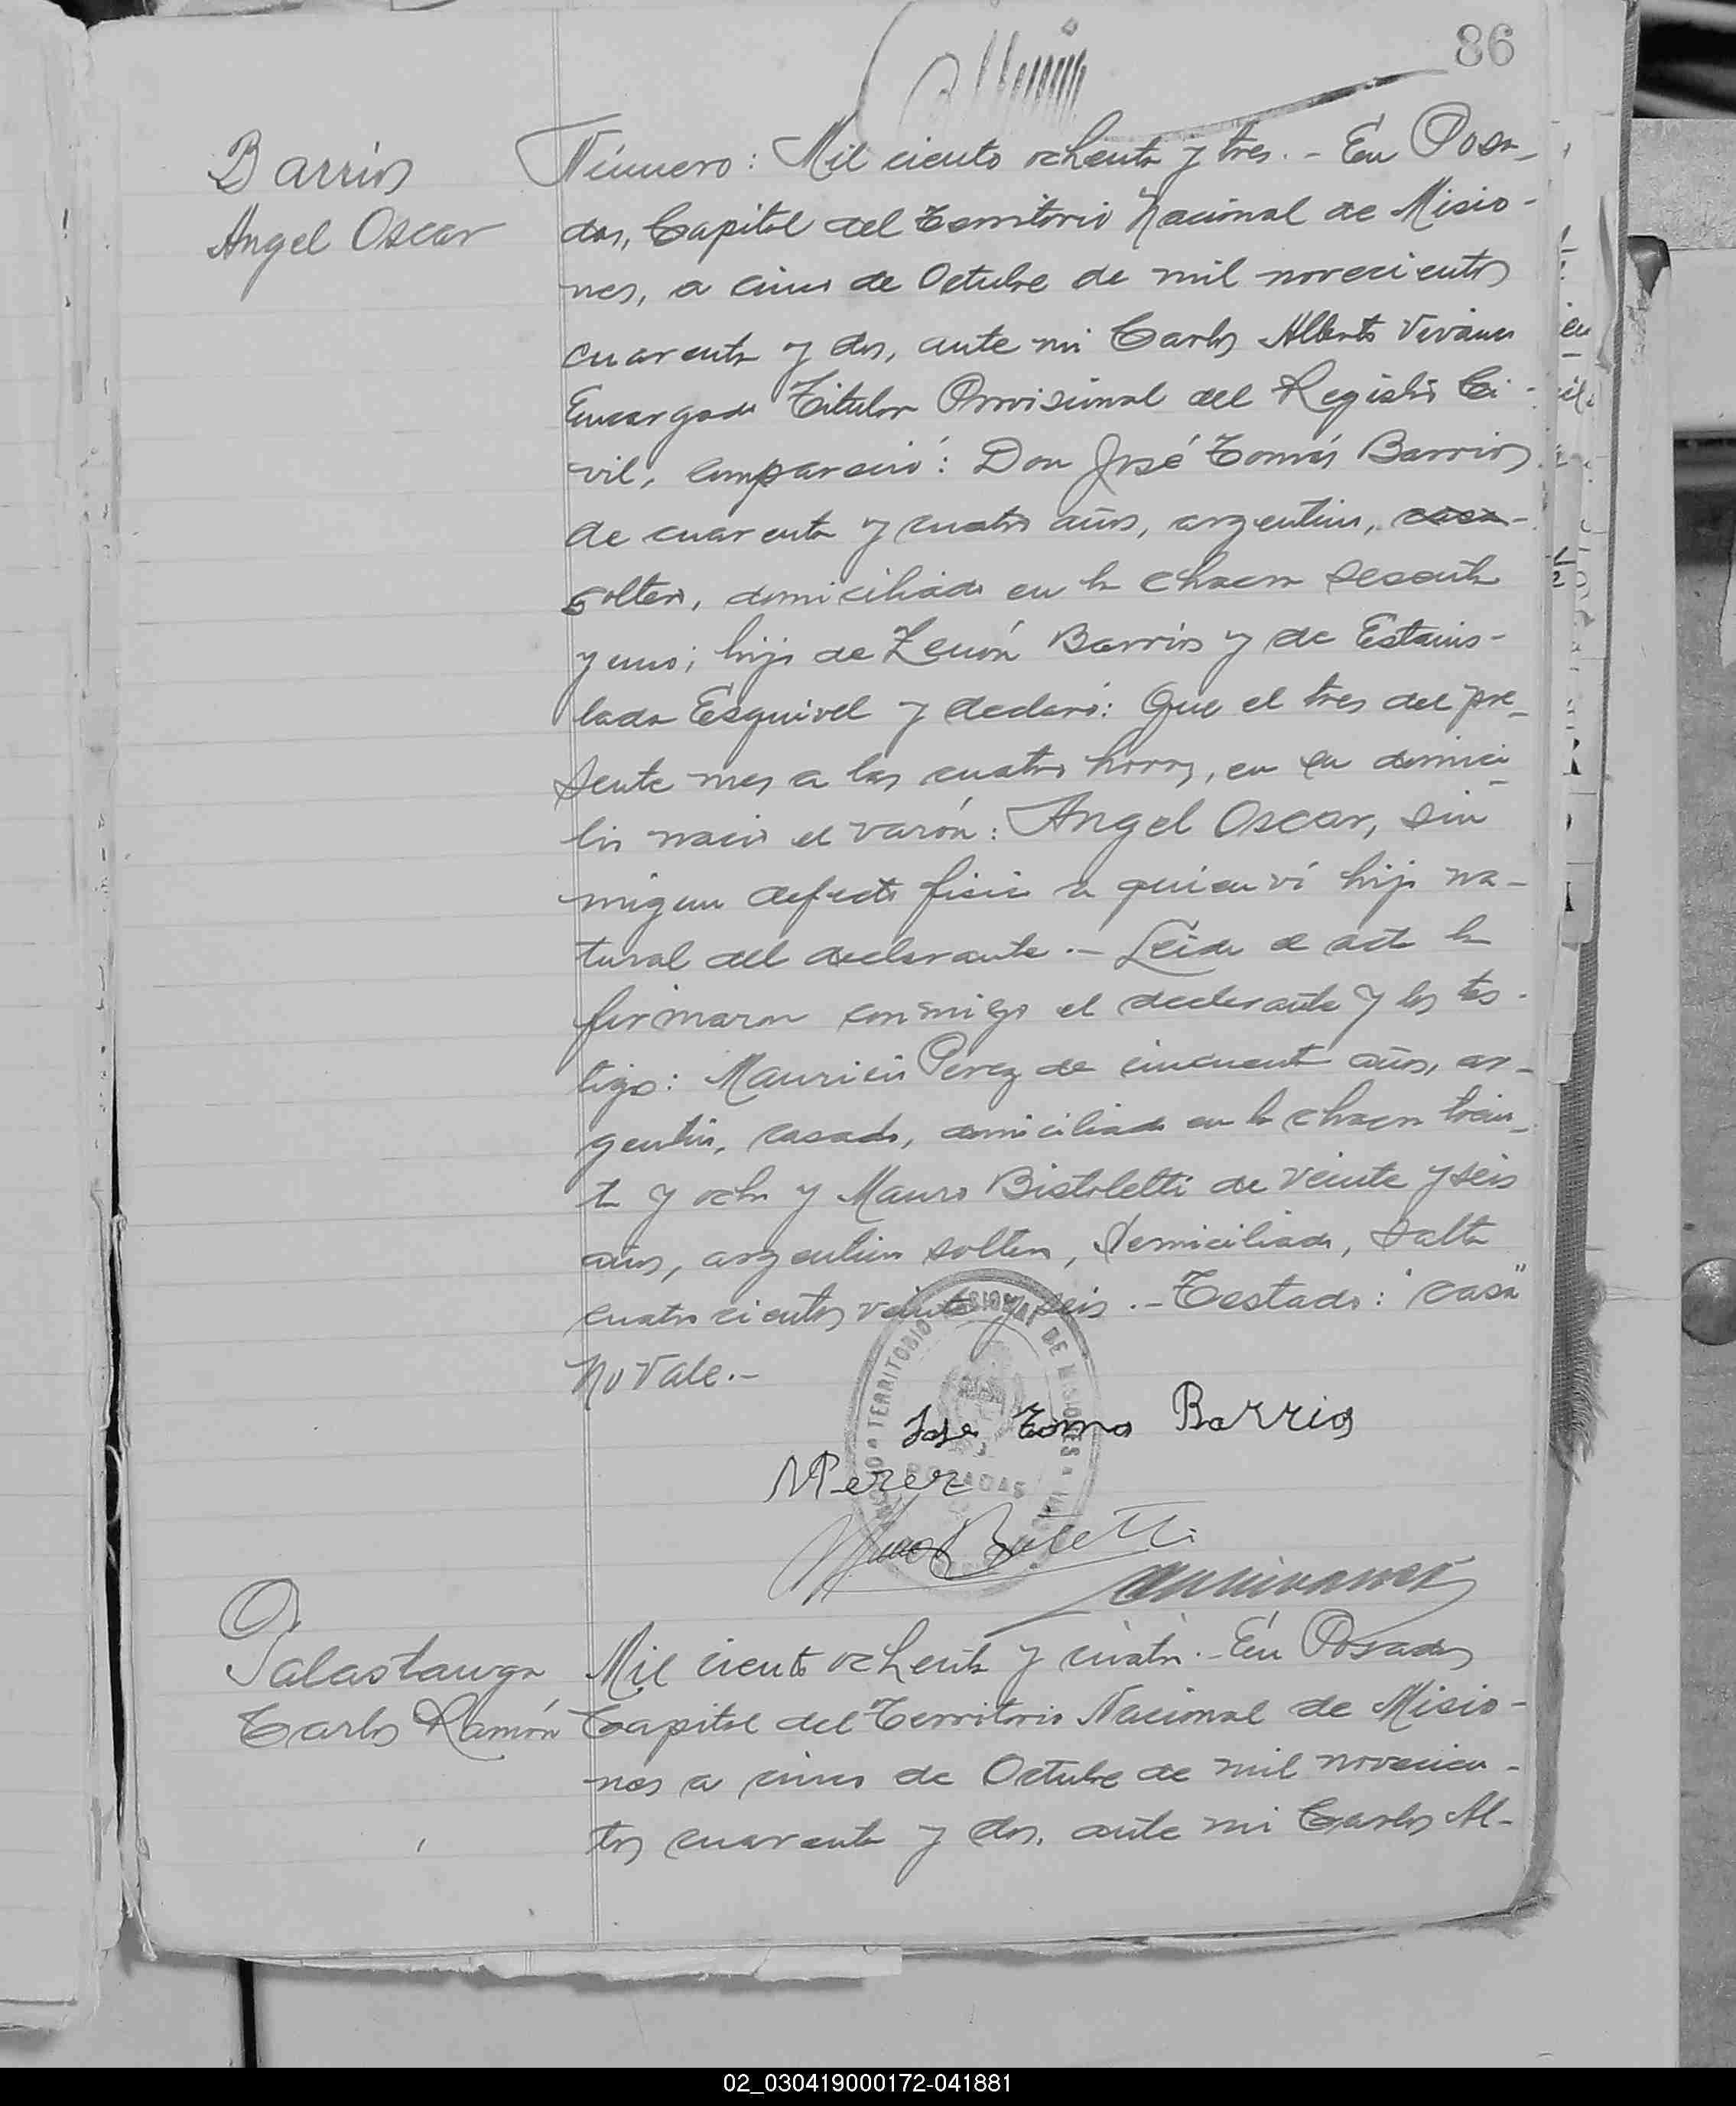 86
Barrios
Angel Oscar
Número: Mil ciento ochenta y tres.- En Posa-
das, Capital del Territorio Nacional de Misio-
nes, a cinco de Octubre de mil novecientos
cuarenta y dos, ante mi Carlos Alberto Vivanco
Encargado Titular Provisional del Registro Ci-
vil, compareció: Don José Tomás Barrios
de cuarenta y cuatro años, argentino, casa-
soltero, domiciliado en la chacra sesenta
y uno; hijo de Zenón Barrios y de Estanis-
lada Esquivel y declaró: Que el tres del pre-
sente mes a las cuatro horas, en su domici-
lio nació el varón: Angel Oscar, sin
ningun defecto fisico a quien ví hijo na-
tural del declarante.- Leida el acta la
firmaron conmigo el declarante y los tes-
tigos: Mauricio Perez de cincuenta años, ar-
gentino, casado, domiciliado en la chacra trein-
ta y ocho y Mauro Bistoletti de veinte y seis
años, argentino soltero, domiciliado, Salta
cuatrocientos veinte y seis.- Testado: "casa"
no vale.-
TERRITORIO NACIONAL DE MISIONES
POSADAS
Jose Tomas Barrios
MPerez
Palastanga
Carlos Ramón
Mil ciento ochenta y cuatro.- En Posadas
Capital del Territorio Nacional de Misio-
nes a cinco de Octubre de mil novecien-
tos cuarenta y dos, ante mi Carlos Al-
02_030419000172-041881